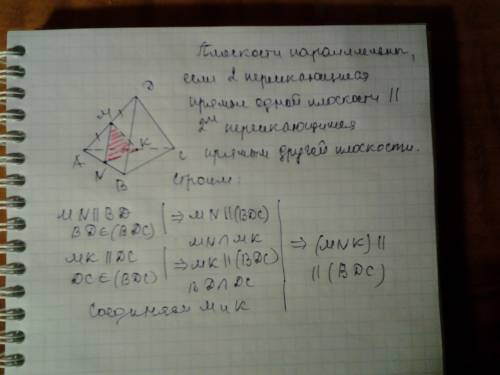 Плоскости параллельны,
если 2 пересекающиеся
прямые одной плоскости ||
2ᵐ пересекающимся
прямым другой плоскости.
Строим:
D
M
K
A
C
N
B
MN || BD
BD ∈ (BDC)
⇒ MN || (BDC)
MN ∩ MK
MK || DC
DC ∈ (BDC)
⇒ MK || (BDC)
BD ∩ DC
⇒ (MNK) ||
|| (BDC)
Соединяем M и K